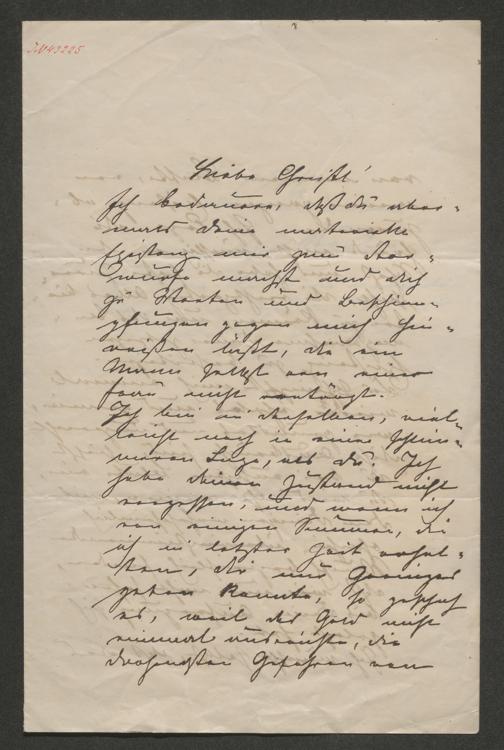 J.N 43225
Liebe Christl!
Ich bedauere, daß du aber-
mals deine
Existenz mir zum Vor-
wurfe machst und dich
zu Worten und Beschim-
pfungen gegen mich hin-
reißen läßt, die ein
Mann selbst von einer
Frau nicht verträgt.
Ich bin in derselben, viel-
leicht noch in einer schlim-
meren Lage, als du. Ich
habe deinen Zustand nicht
vergessen, und wenn ich
von einigen Summen, die
ich in letzter Zeit erhal-
ten, dir nur Geringes
geben konnte, so geschah
es, weil das Geld nicht
einmal ausreichte, die
drohendsten Gefahren von